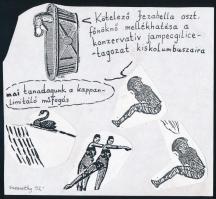 Kötelező Jezabella oszt.
főnöknő mellékhatása a
konzervatív jampecgilice-
-tagozat kiskolumbuszaira
mai tanadagunk a kappan-
limitáló műfogás